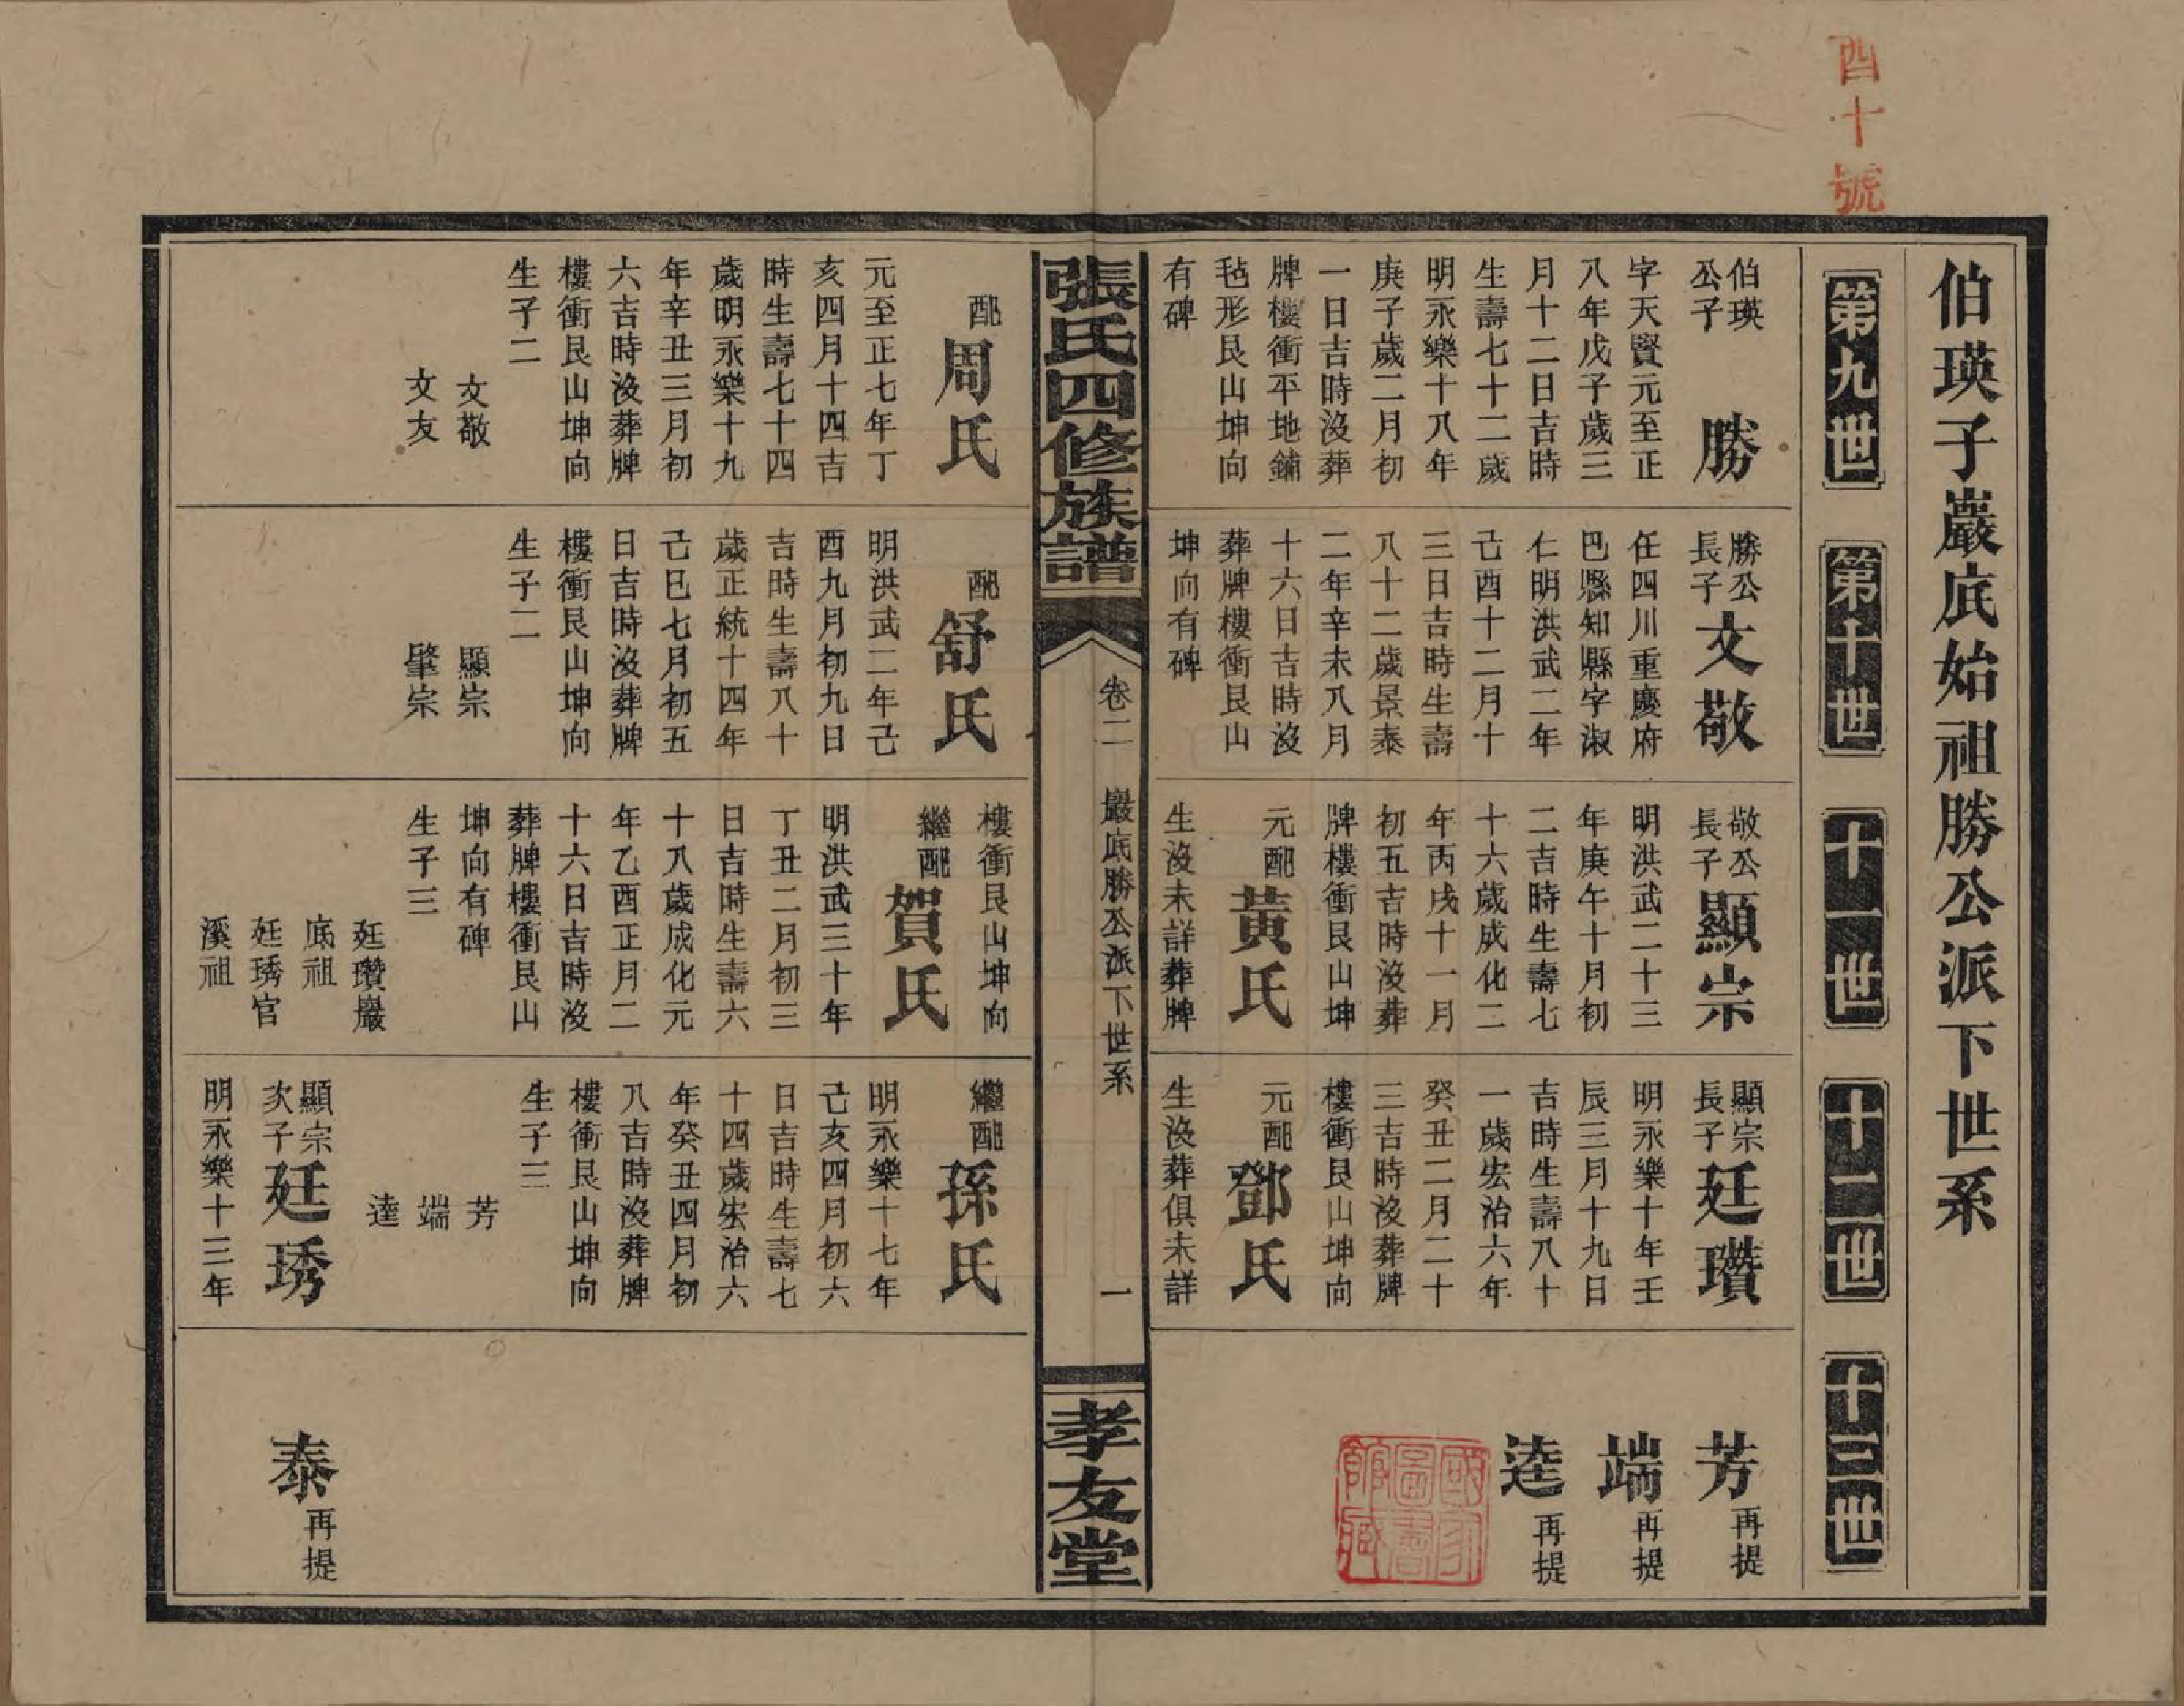 四十號
伯瑛子巖底始祖勝公派下世系
第九世
第十世
十一世
十二世
十三世
伯瑛
公子
勝
字天賢元至正
八年戊子歲三
月十二日吉時
生壽七十二歲
明永樂十八年
庚子歲二月初
一日吉時沒葬
牌樓衝平地鋪
毡形艮山坤向
有碑
配
周氏
元至正七年丁
亥四月十四吉
時生壽七十四
歲明永樂十九
年辛丑三月初
六吉時沒葬牌
樓衝艮山坤向
生子二
文敬
文友
勝公
長子
文敬
任四川重慶府
巴縣知縣字淑
仁明洪武二年
己酉十二月十
三日吉時生壽
八十二歲景泰
二年辛未八月
十六日吉時沒
葬牌樓衝艮山
坤向有碑
配
舒氏
明洪武二年己
酉九月初九日
吉時生壽八十
歲正統十四年
己巳七月初五
日吉時沒葬牌
樓衝艮山坤向
生子二
顯宗
肇宗
敬公
長子
顯宗
明洪武二十三
年庚午十月初
二吉時生壽七
十六歲成化二
年丙戌十一月
初五吉時沒葬
牌樓衝艮山坤
元配
黃氏
生沒未詳葬牌
樓衝艮山坤向
繼配
賀氏
明洪武三十年
丁丑二月初三
日吉時生壽六
十八歲成化元
年乙酉正月二
十六日吉時沒
葬牌樓衝艮山
坤向有碑
生子三
廷瓚巖
底祖
廷琇官
溪祖
顯宗
長子
廷瓚
明永樂十年壬
辰三月十九日
吉時生壽八十
一歲宏治六年
癸丑二月二十
三吉時沒葬牌
樓衝艮山坤向
元配
鄧氏
生沒葬俱未詳
繼配
孫氏
明永樂十七年
己亥四月初六
日吉時生壽七
十四歲宏治六
年癸丑四月初
八吉時沒葬牌
樓衝艮山坤向
生子三
芳
端
逵
顯宗
次子
廷琇
明永樂十三年
芳 再提
端 再提
逵 再提
泰 再提
國家圖書館藏
張氏四修族譜
卷二
巖底勝公派下世系
一
孝友堂